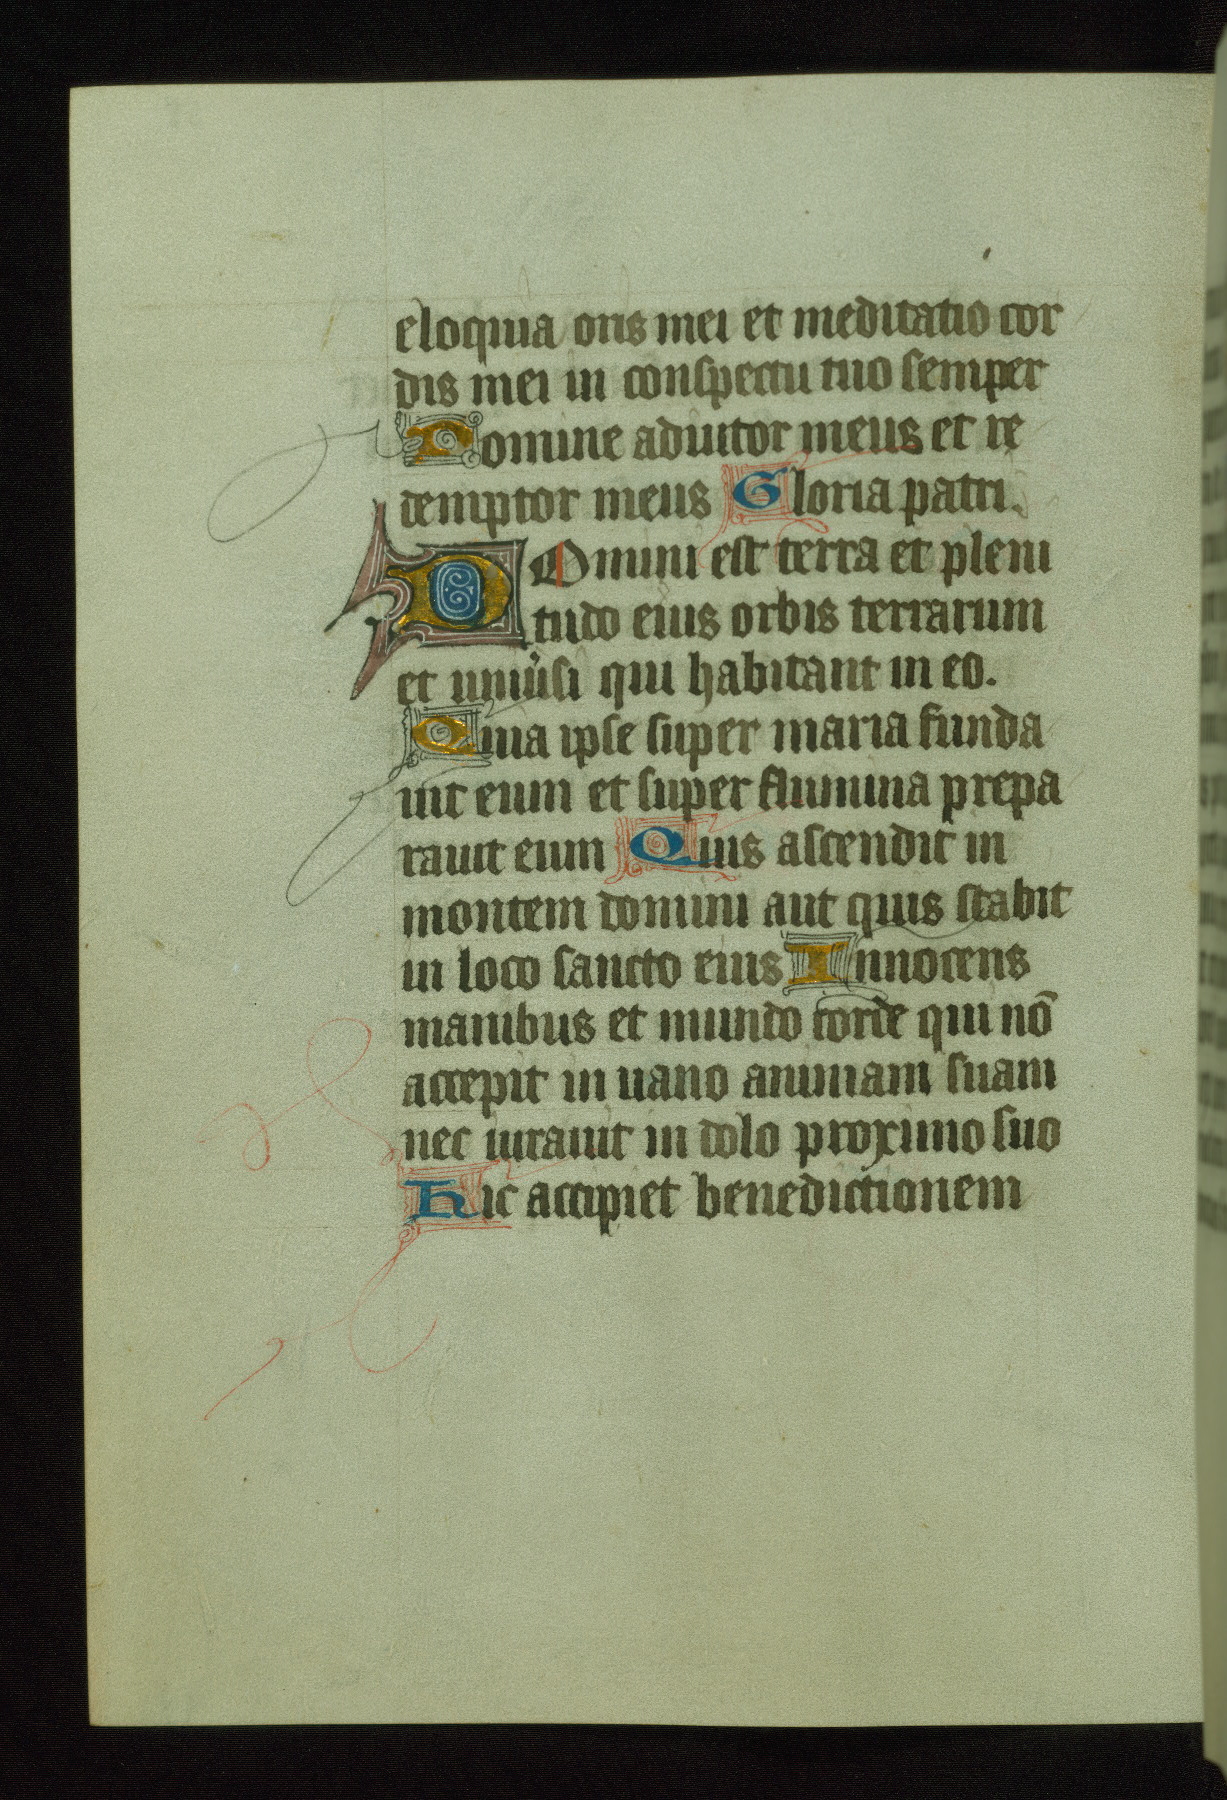 eloquia oris mei et meditatio cor
dis mei in conspectu tuo semper
Domine adiutor meus et re
demptor meus Gloria patri.
DOmini est terra et pleni
tudo eius orbis terrarum
et uniusi qui habitant in eo.
Quia ipse super maria funda
uit eum et super flumina prepa
rauit eum Quis ascendit in
montem domini aut quis stabit
in loco sancto eius Innocens
manibus et mundo corde qui nō
accepit in uano animam suam
nec iurauit in dolo proximo suo
Hic accipiet benedictionem